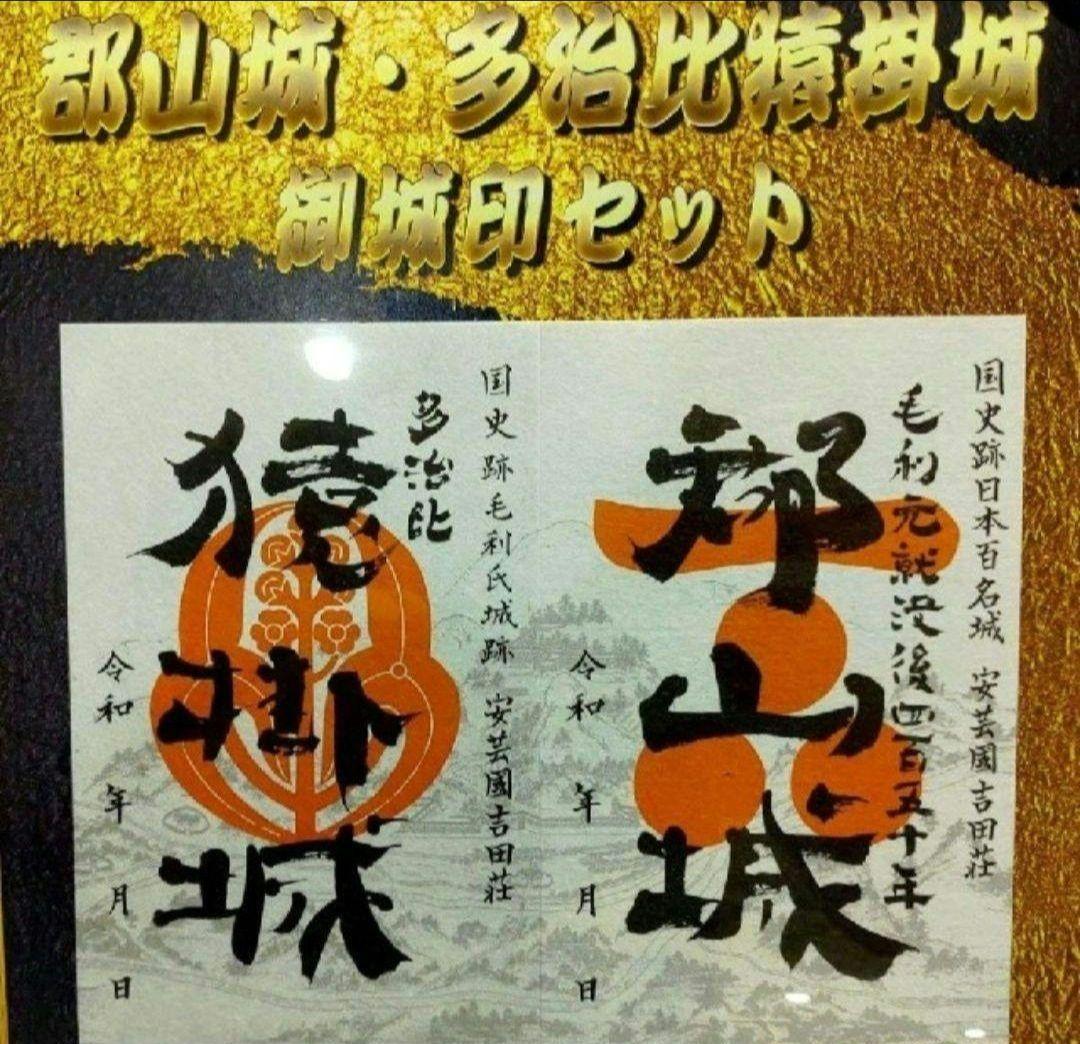 郡山城・多治比猿掛城
御城印セット
国史跡日本百名城 安芸國吉田荘
毛利元就没後四百五十年
郡山城
令和 年 月 日
国史跡毛利氏城跡 安芸國吉田荘
多治比
猿掛城
令和 年 月 日